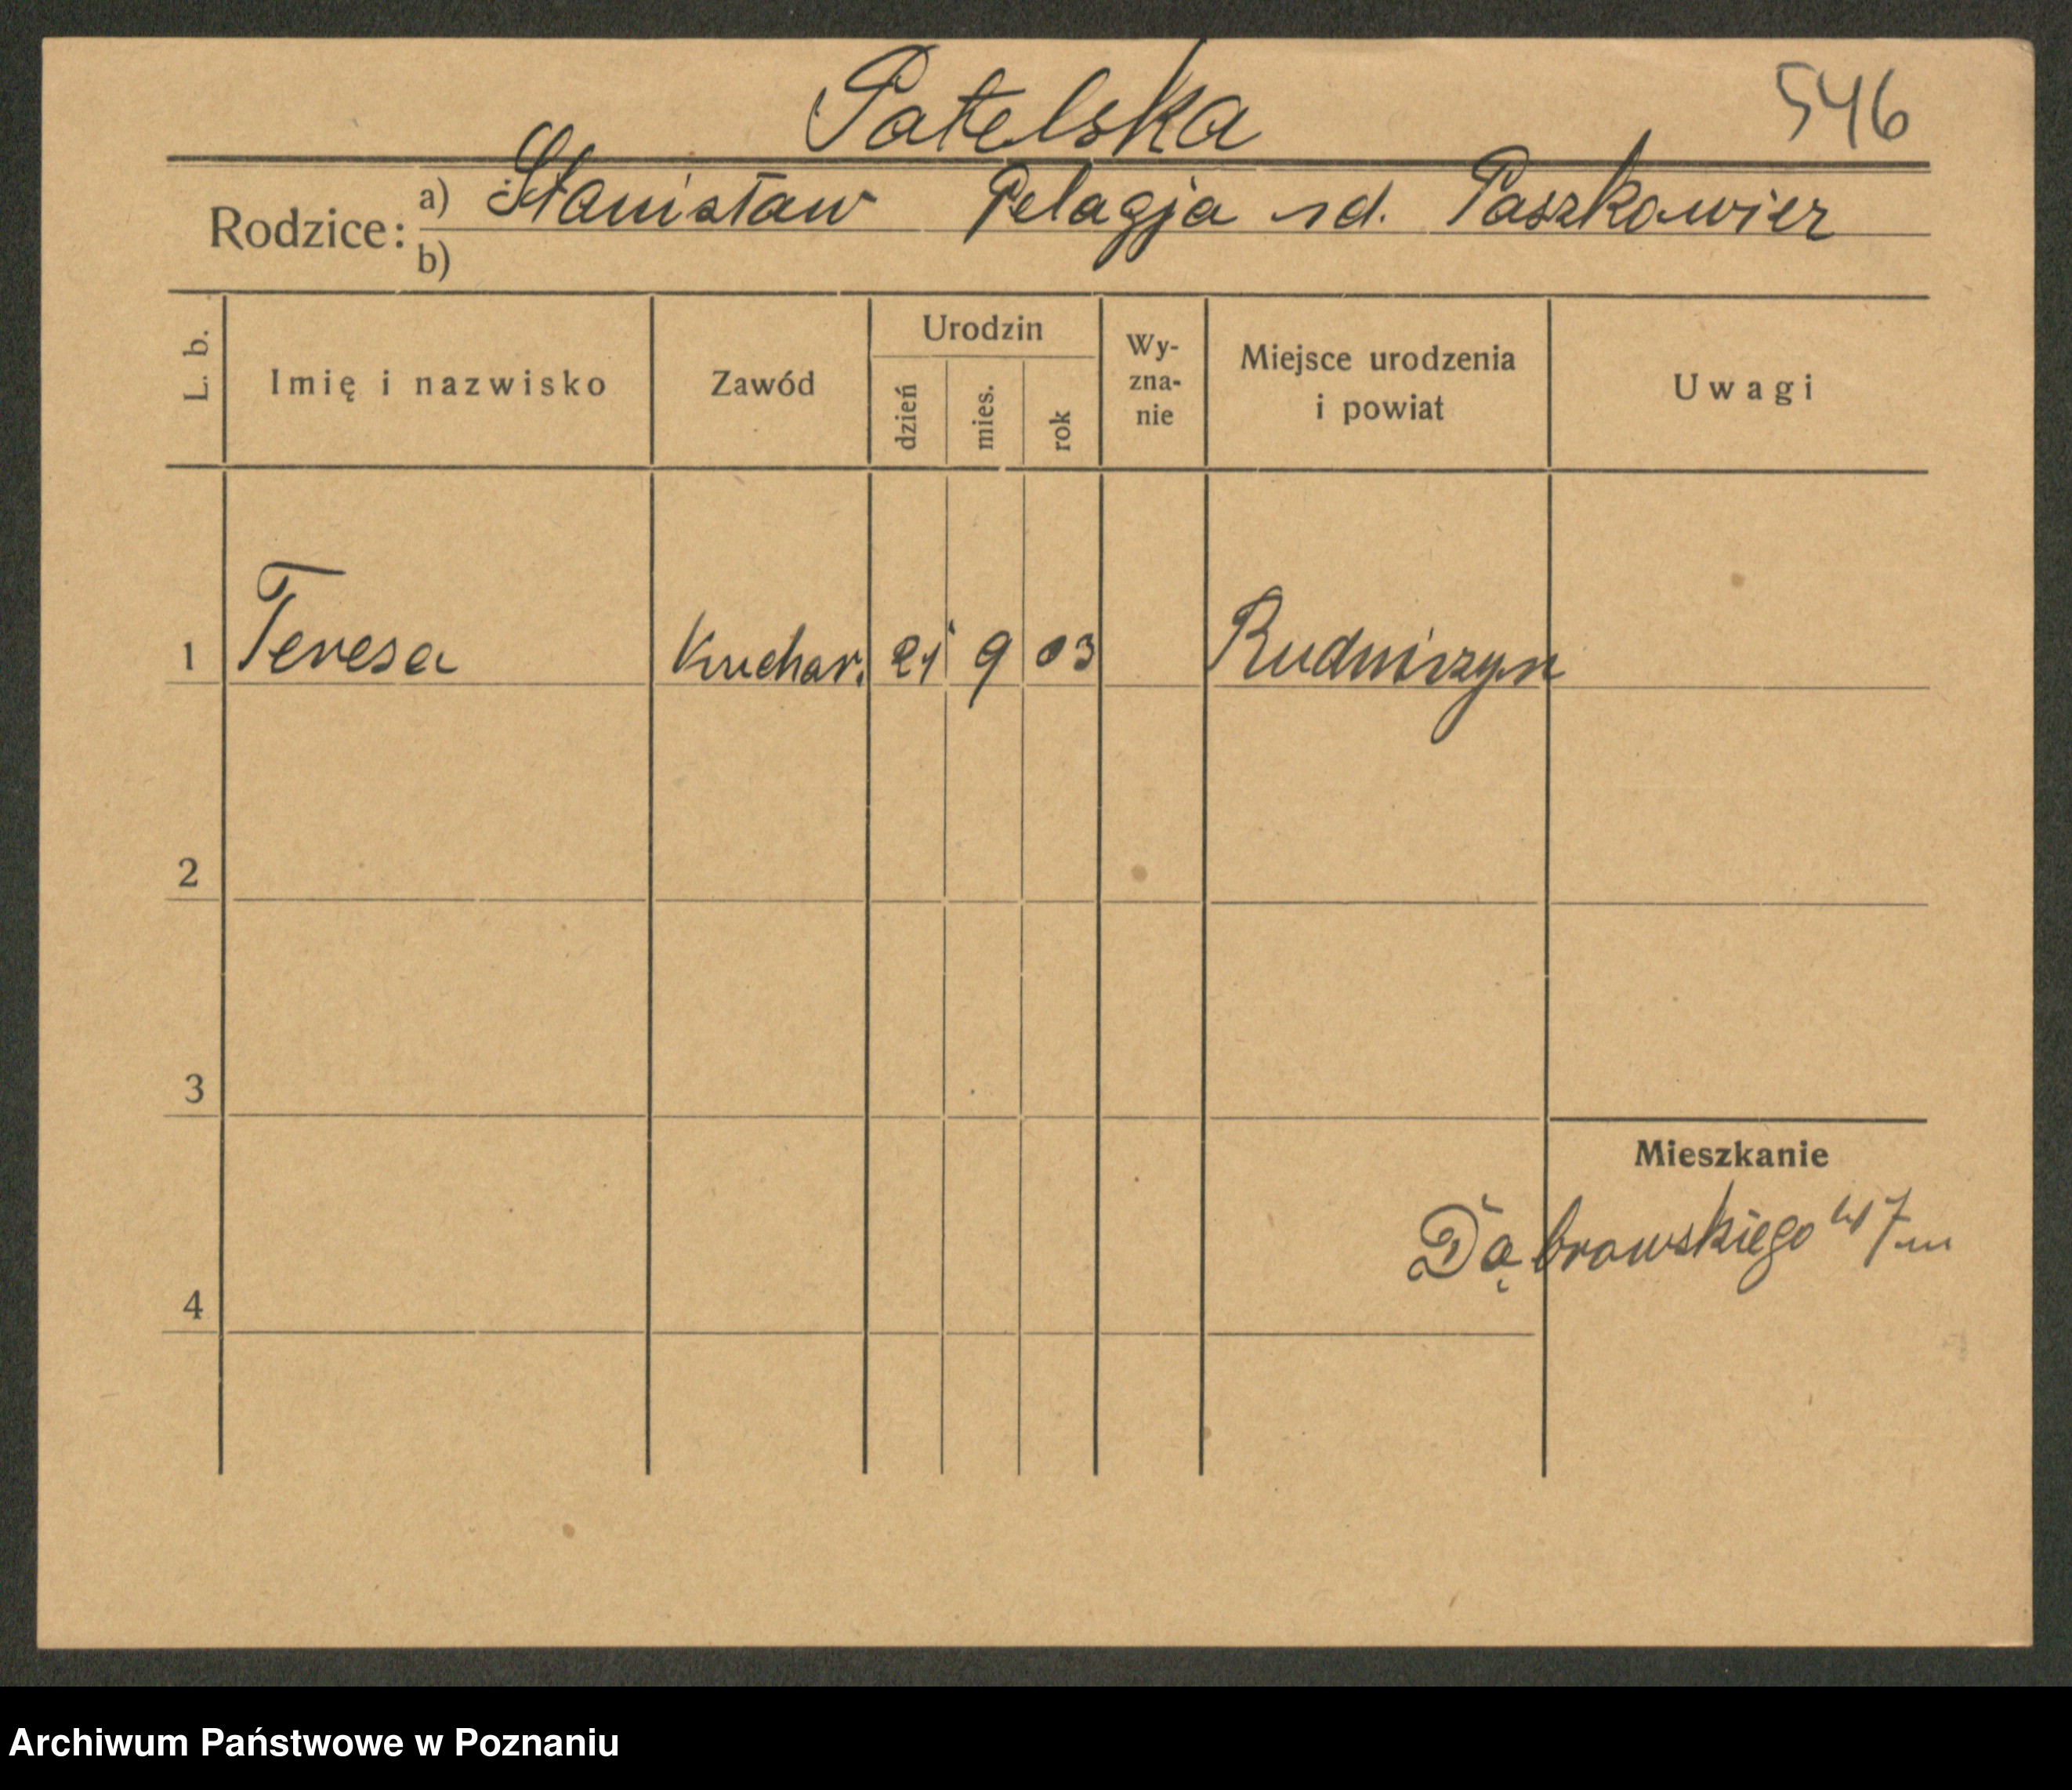 Patelska
546
Rodzice: a) Stanisław Pelagja zd. Paszkowier
b)
L. b. Imię i nazwisko Zawód Urodzin dzień mies. rok Wy-zna-nie Miejsce urodzenia i powiat Uwagi
1 Teresa Kuchar. 21 9 03 Rudniczyn
2
3
Mieszkanie
Dąbrowskiego 47
4
Archiwum Państwowe w Poznaniu